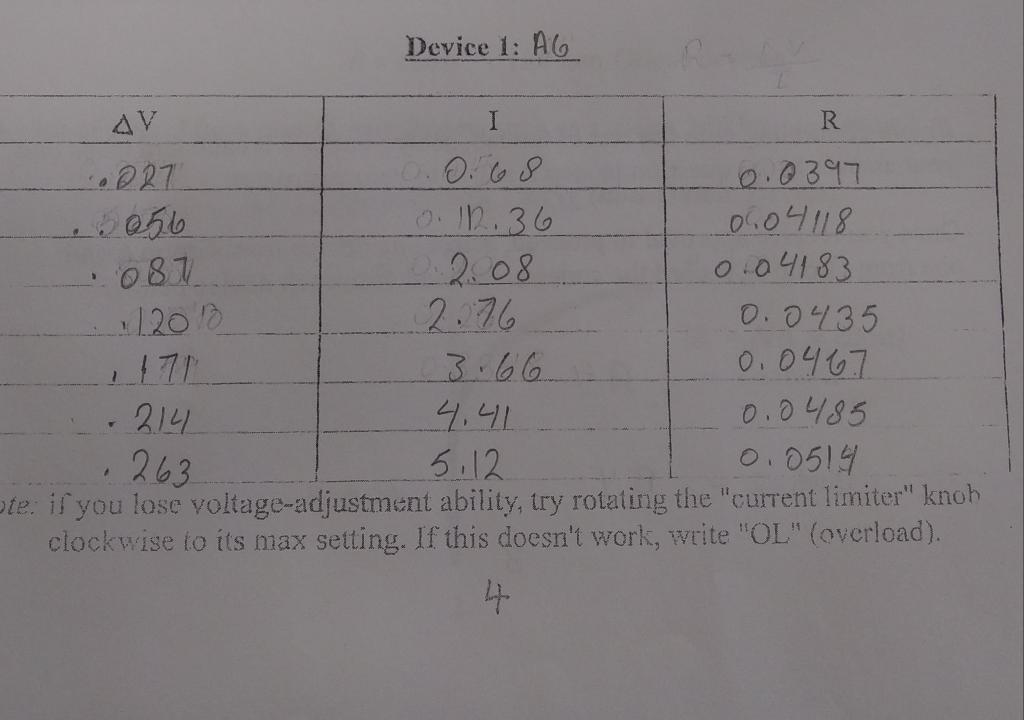 Device 1: A6
ΔV I R
.027 0.68 0.0397
.056 1.36 0.04118
.087 2.08 0.04183
.120 2.76 0.0435
.171 3.66 0.0467
.214 4.41 0.0485
.263 5.12 0.0514
ote: if you lose voltage-adjustment ability, try rotating the "current limiter" knob
clockwise to its max setting. If this doesn't work, write "OL" (overload).
4